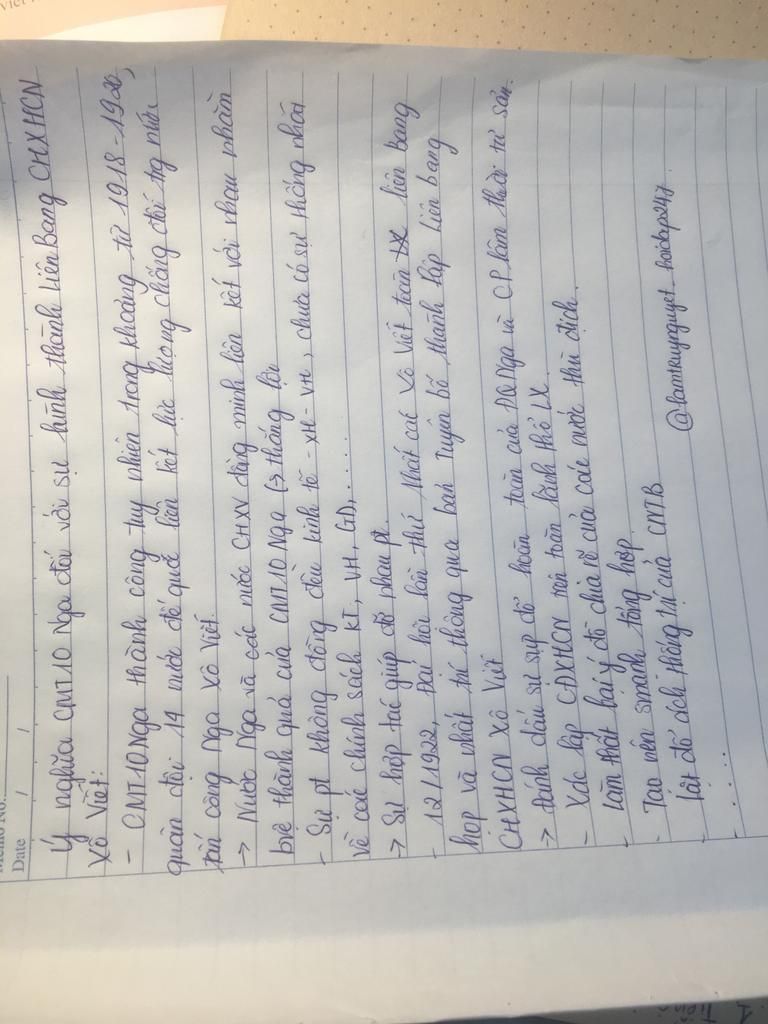 Memo No.:
Date / /
Ý nghĩa CMT10 Nga đối với sự hình thành Liên Bang CHXHCN
Xô Viết:
- CMT10 Nga thành công tuy nhiên trong khoảng từ 1918-1920,
quân đội 14 nước đế quốc liên kết lực lượng chống đối trg nước
tấn công Nga Xô Viết.
→ Nước Nga và các nước CHXV đồng minh liên kết với nhau nhằm
bvệ thành quả của CMT10 Nga (→ thắng lợi
- Sự pt không đồng đều kinh tế - XH - VH, chưa có sự thống nhất
về các chính sách KT, VH, GD,....
→ Sự hợp tác giúp đỡ nhau pt.
- 12/1922, Đại hội lần thứ nhất các Xô Viết toàn liên bang
họp và nhất trí thông qua bản Tuyên bố thành lập Liên bang
CHXHCN Xô Viết
→ Đánh dấu sự sụp đổ hoàn toàn của ĐQ Nga và CP lâm thời tư sản.
- Xác lập CĐXHCN trên toàn lãnh thổ LX.
- Làm thất bại ý đồ chia rẽ của các nước thù địch.
- Tạo nên smạnh tổng hợp
- lật đổ ách thống trị của CNTB @lamtkuynguyet_hoidap247
- ....